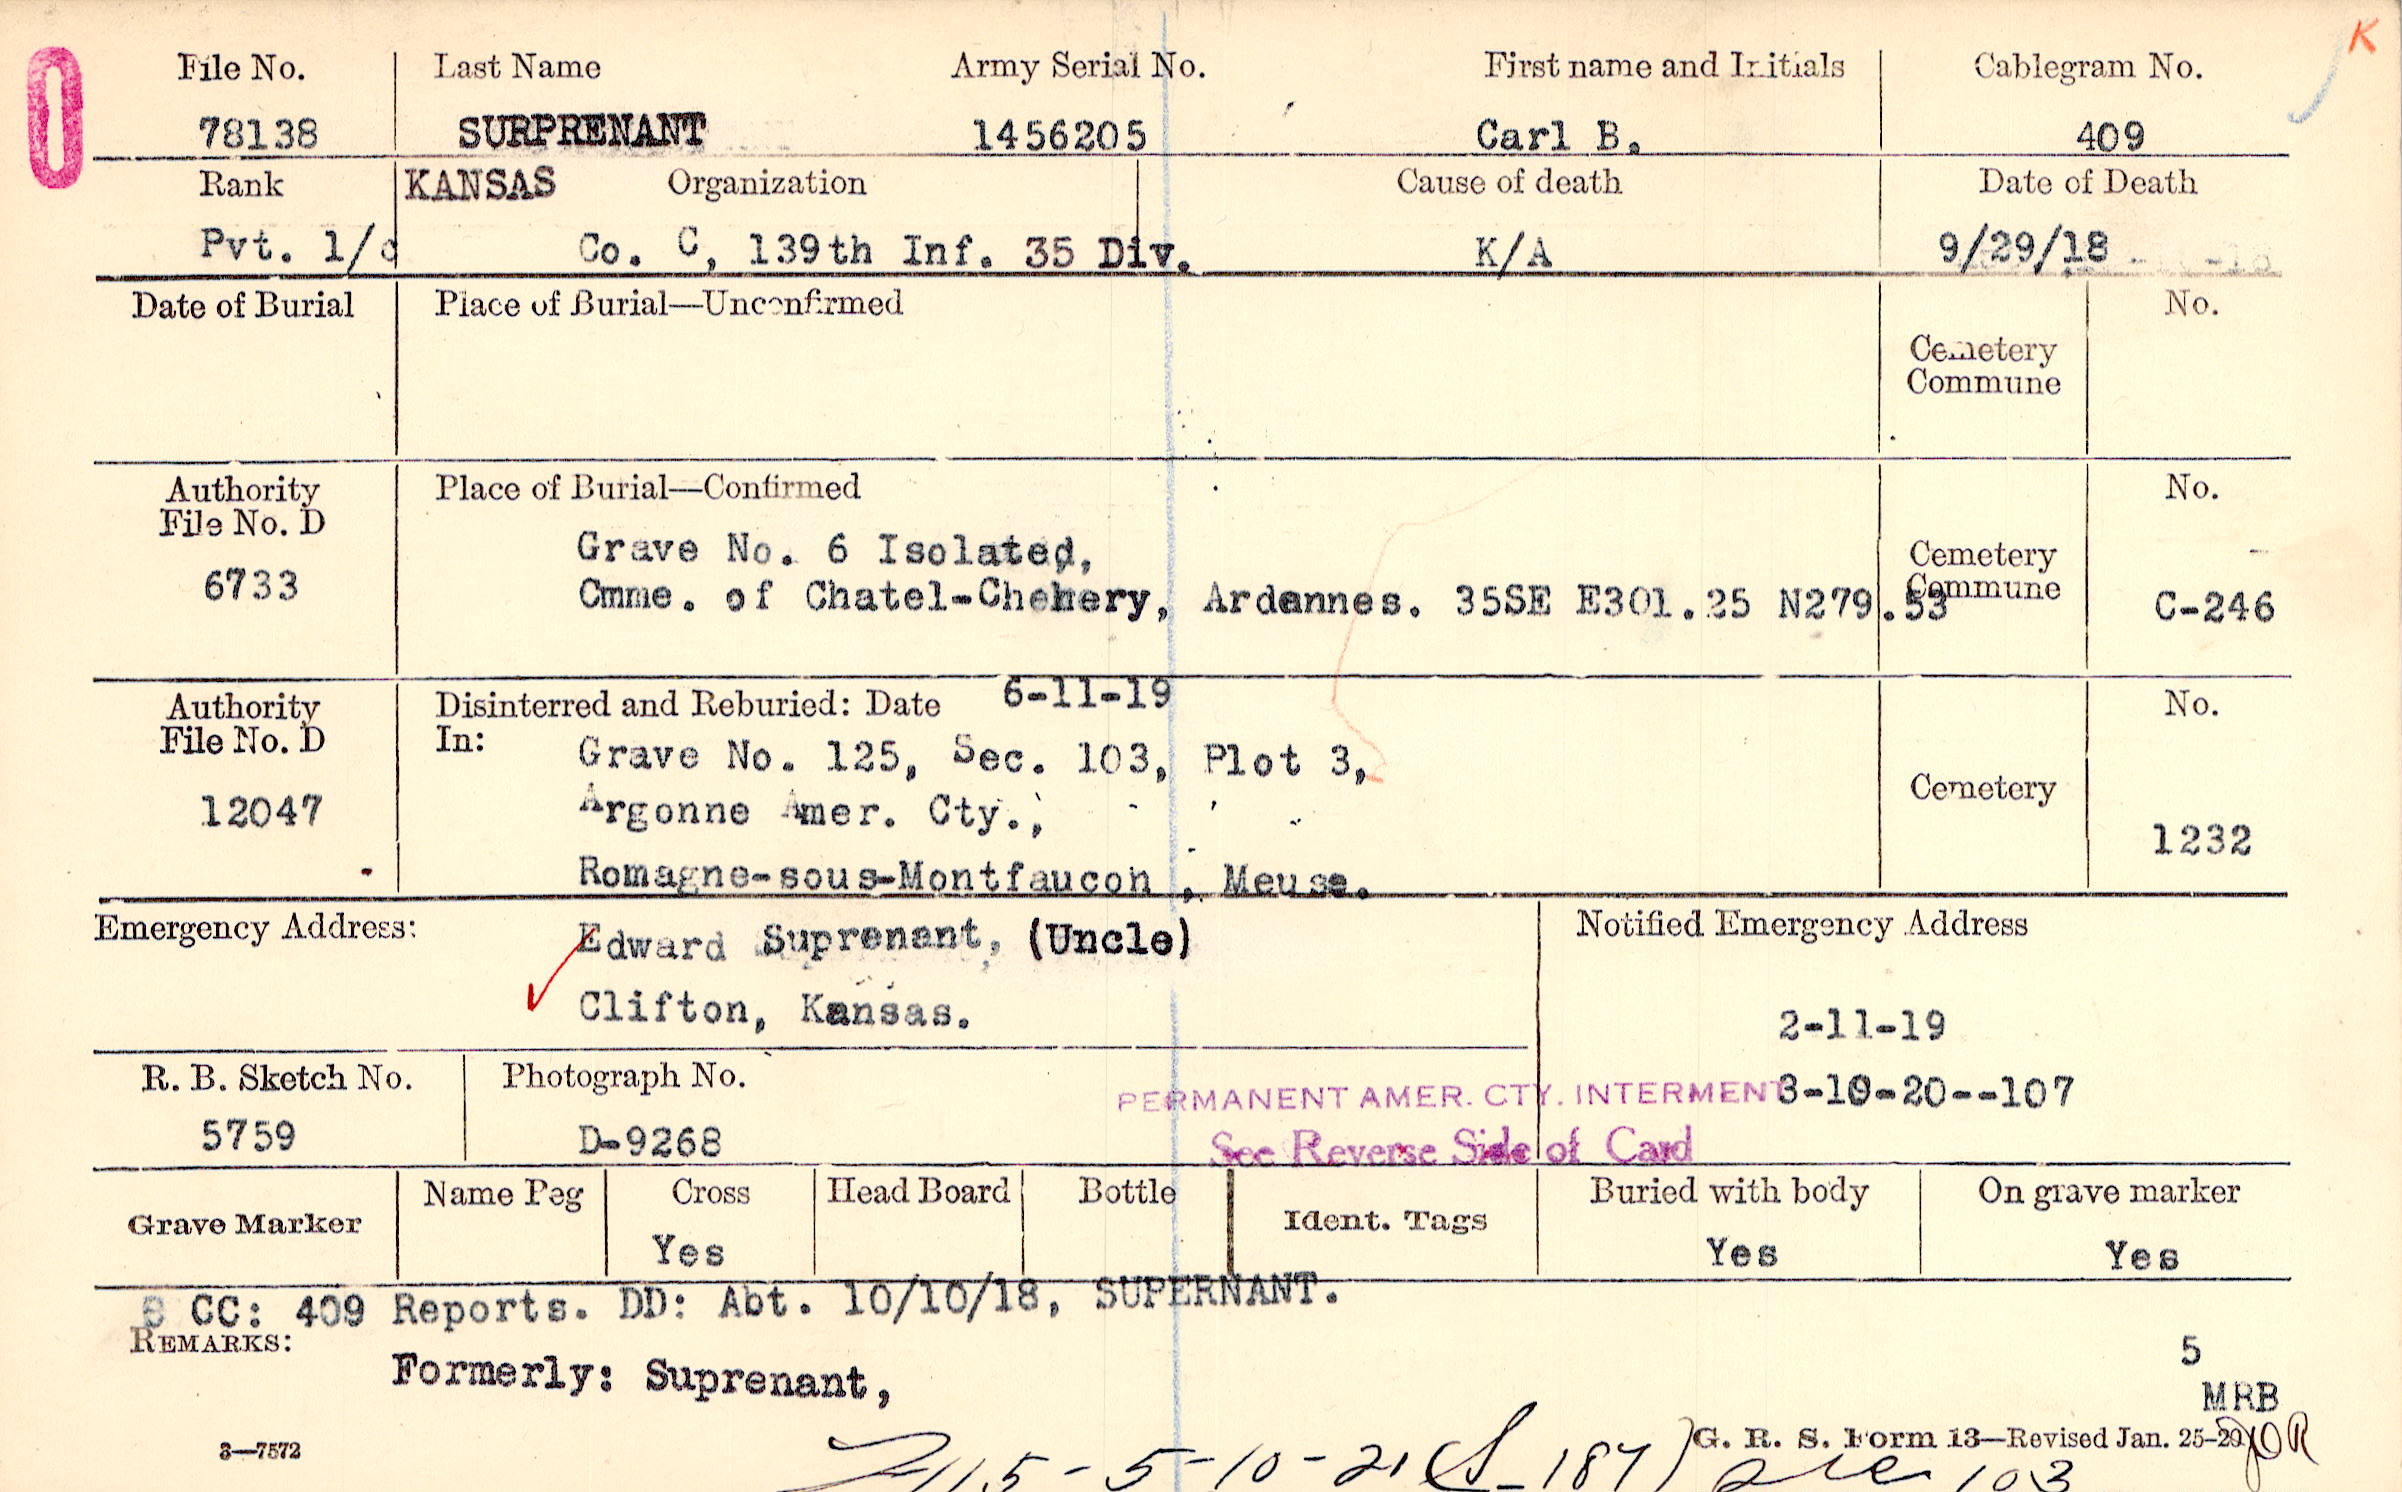 K
0
File No. Last Name Army Serial No. First name and Initials Cablegram No.
78138 SURPRENANT 1456205 Carl B. 409
Rank KANSAS Organization Cause of death Date of Death
Pvt. 1/c Co. C, 139th Inf. 35 Div. K/A 9/29/18
Date of Burial Place of Burial—Unconfirmed No.
Cemetery
Commune
Authority Place of Burial—Confirmed No.
File No. D
Grave No. 6 Isolated, Cemetery
6733 Cmme. of Chatel-Chehery, Ardennes. 35SE E301.25 N279.53 Commune C-246
Authority Disinterred and Reburied: Date 6-11-19 No.
File No. D In: Grave No. 125, Sec. 103, Plot 3,
12047 Argonne Amer. Cty., Cemetery
1232
Romagne-sous-Montfaucon, Meuse.
Emergency Address: Edward Suprenant, (Uncle) Notified Emergency Address
Clifton, Kansas. 2-11-19
R. B. Sketch No. Photograph No. PERMANENT AMER. CTY. INTERMENT 3-10-20--107
5759 D-9268 See Reverse Side of Card
Grave Marker Name Peg Cross Head Board Bottle Ident. Tags Buried with body On grave marker
Yes Yes Yes
CC: 409 Reports. DD: Abt. 10/10/18, SUPERNANT.
REMARKS: 5
Formerly: Suprenant, MRB
3—7572 G. R. S. Form 13—Revised Jan. 25-20
5-10-21 103